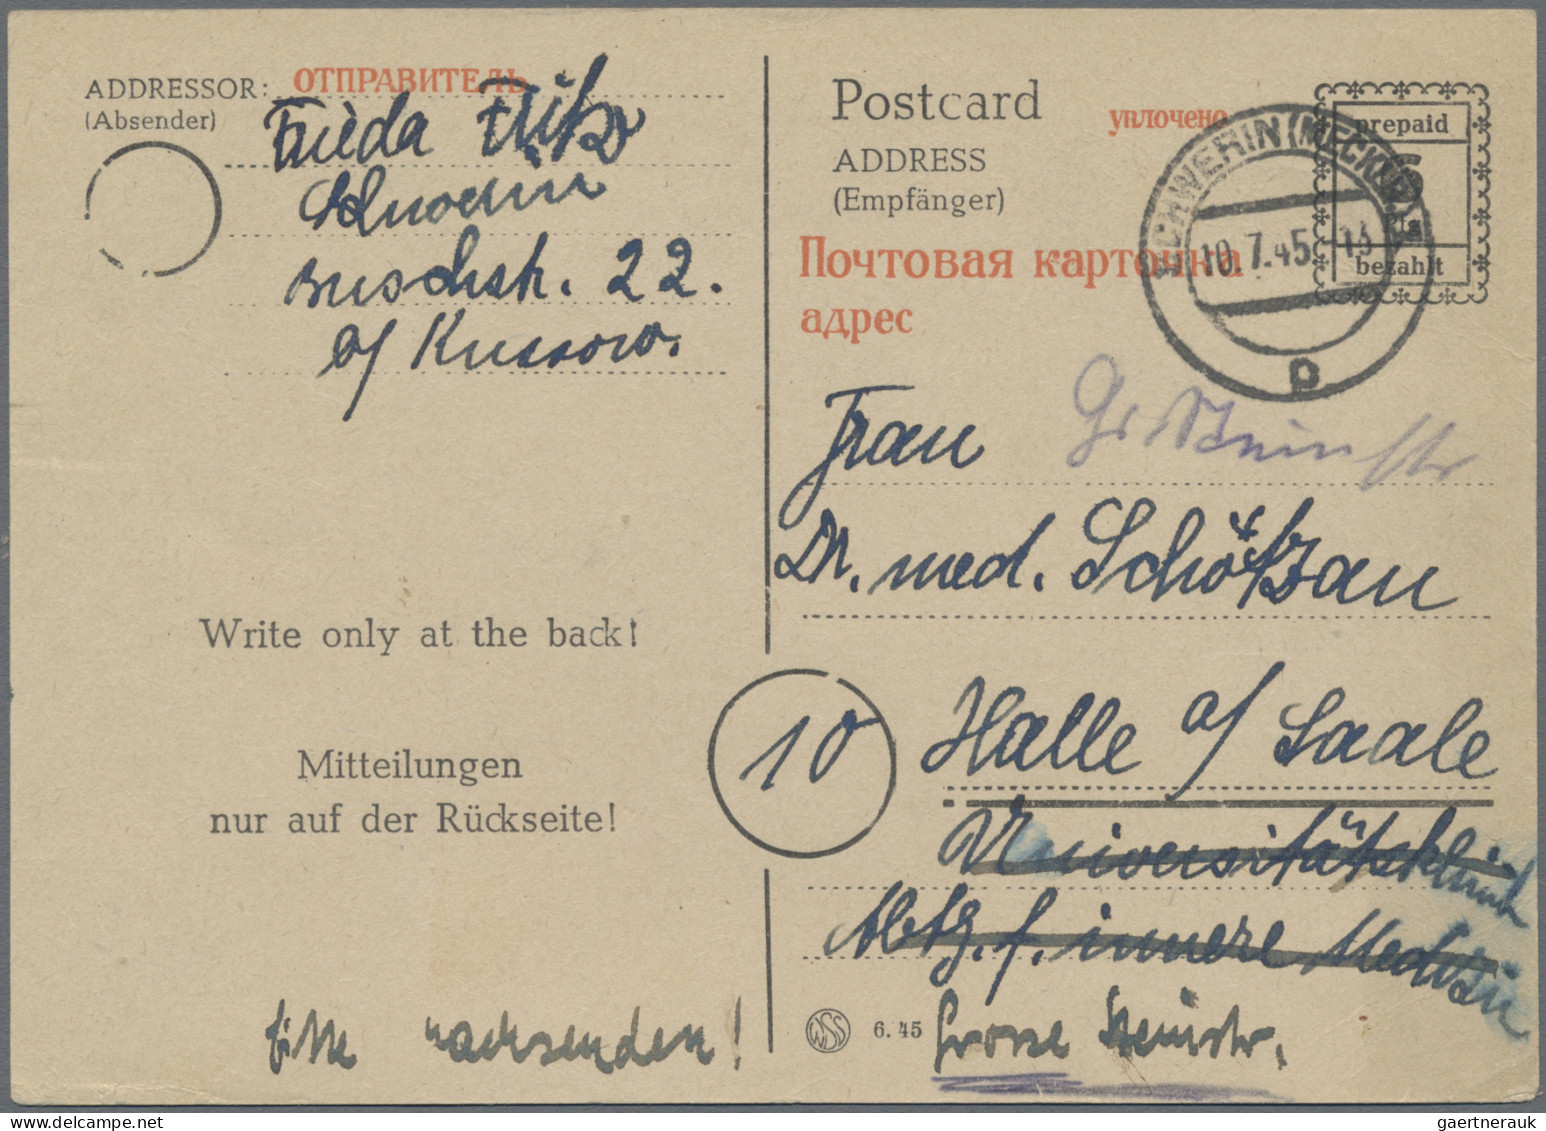 ADDRESSOR: ОТПРАВИТЕЛЬ
(Absender)
Frieda
Schwerin
Buschstr. 22.
b/ Kussow.
Write only at the back!
Mitteilungen
nur auf der Rückseite!
bitte nachsenden!
Postcard
уплочено
ADDRESS
(Empfänger)
Почтовая карточка
адрес
prepaid
bezahlt
SCHWERIN (MECKLB)
10.7.45
p
Frau
Gr. Steinstr
Dr. med. Schötzau
10
Halle a/ Saale
Universitätsklinik
Abtg. f. innere Medizin
WSS
6. 45
Grosse Steinstr.
gaertnerauk
gaertnerauk.delcampe.net